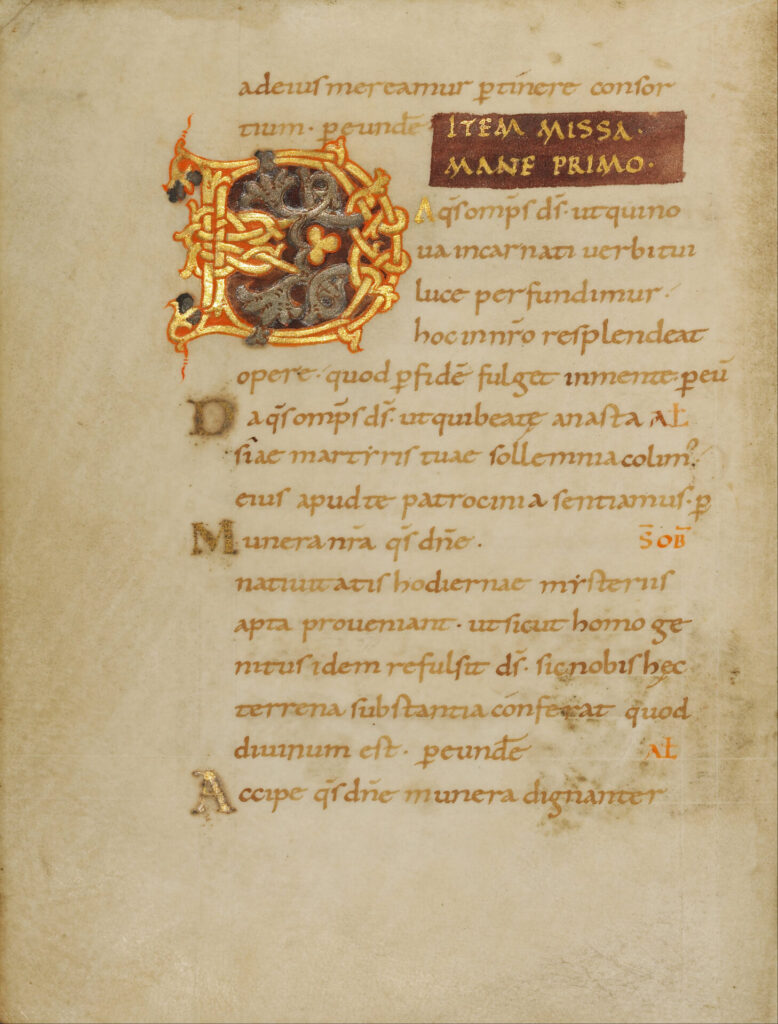 adeius mereamur p̄tinere consor
tium · peundē
ITEM MISSA ·
MANE PRIMO ·
DA q̄s omp̄s d̄s · ut qui no
ua incarnati uerbi tui
luce perfundimur ·
hoc in nr̄o resplendeat
opere · quod p̄ fidē fulget in mente · p eū
Da q̄s omp̄s d̄s · ut qui beatę anasta AL̄
siae martyris tuae sollemnia colim̄ ·
eius apud te patrocinia sentiamus · p̄
Munera nr̄a q̄s dn̄e · S̄ OB̄
natiuitatis hodiernae mysteriis
apta proueniant · ut sicut homo ge
nitus idem refulsit d̄s · sic nobis hęc
terrena substantia conferat quod
diuinum est · peundē AL̄
Accipe q̄s dn̄e munera dignanter